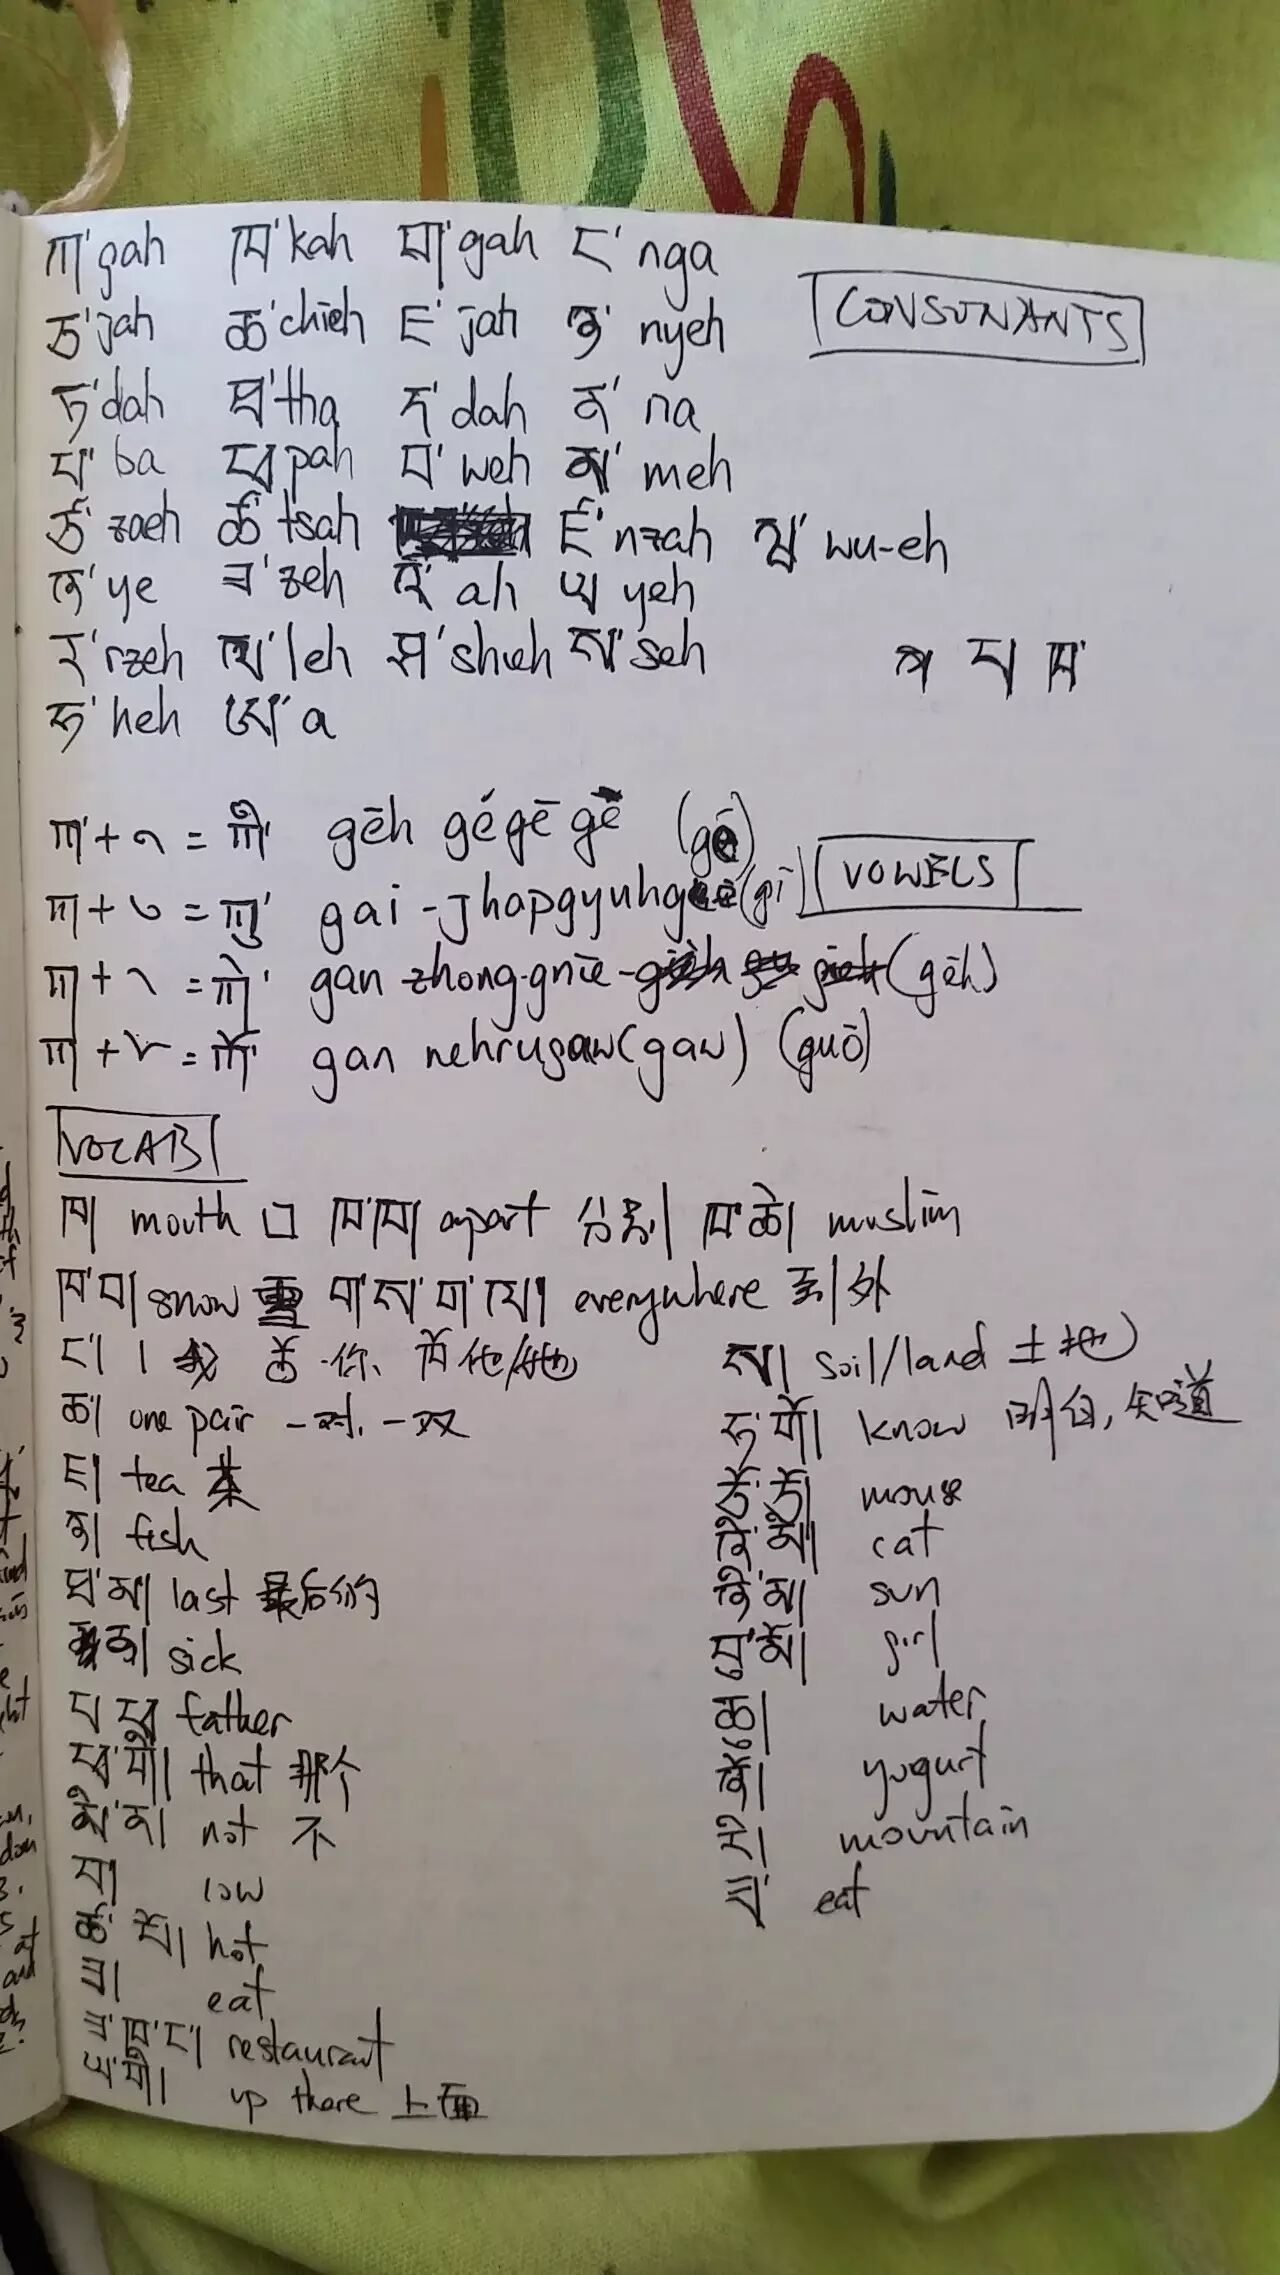 ཀ་ gah ཁ་ kah ག་ gah ང་ nga
CONSONANTS
ཅ་ jah ཆ་ chieh ཇ་ jah ཉ་ nyeh
ཏ་ dah ཐ་ tha ད་ dah ན་ na
པ་ ba ཕ pah བ་ weh མ་ meh
ཙ་ zaeh ཚ་ tsah ཛ་ nzah ཝ་ wu-eh
ཞ་ ye ཟ་ zeh འ་ ah ཡ yeh
ར་ rzeh ལ་ leh ཤ་ shieh ས་ seh
ཧ་ heh ཨ་ a
ཀ་ + ི = ཀི་ gēh gégē gē
VOWELS
ཀ + ུ = ཀུ་ gai-jhapgyuhg (gī)
ཀ + ེ = ཀེ་ gan zhong-gnīe- (gēh)
ཀ + ོ = ཀོ་ gan nehrugaw (gaw) (guō)
VOCAB
ཁ། mouth 口 ཁ་ཁ། apart 分别 ཁ་ཆེ། muslim
ཁ་བ། snow 雪 ག་ས་ག་ལ། everywhere 到处
ང་། I 我 ཆོ 你 ཁོ 他/她
ས། soil/land 土地
ཆ། one pair 一对, 一双
ཧ་གོ། know 明白, 知道
ཇ། tea 茶
ཙི་ཙི། mouse
ཉ། fish
ཞི་མི། cat
ཐ་མ། last 最后的
ཉི་མ། sun
ན། sick
བུ་མོ། girl
པ ཕ father
ཆུ། water
ཕ་གི། that 那个
ཞོ། yogurt
མི་ན། not 不
རི། mountain
མ། low
ཟ་ eat
ཚ་པོ། hot
ཟ། eat
ཟ་ཁ་ང་། restaurant
ཡ་གི། up there 上面